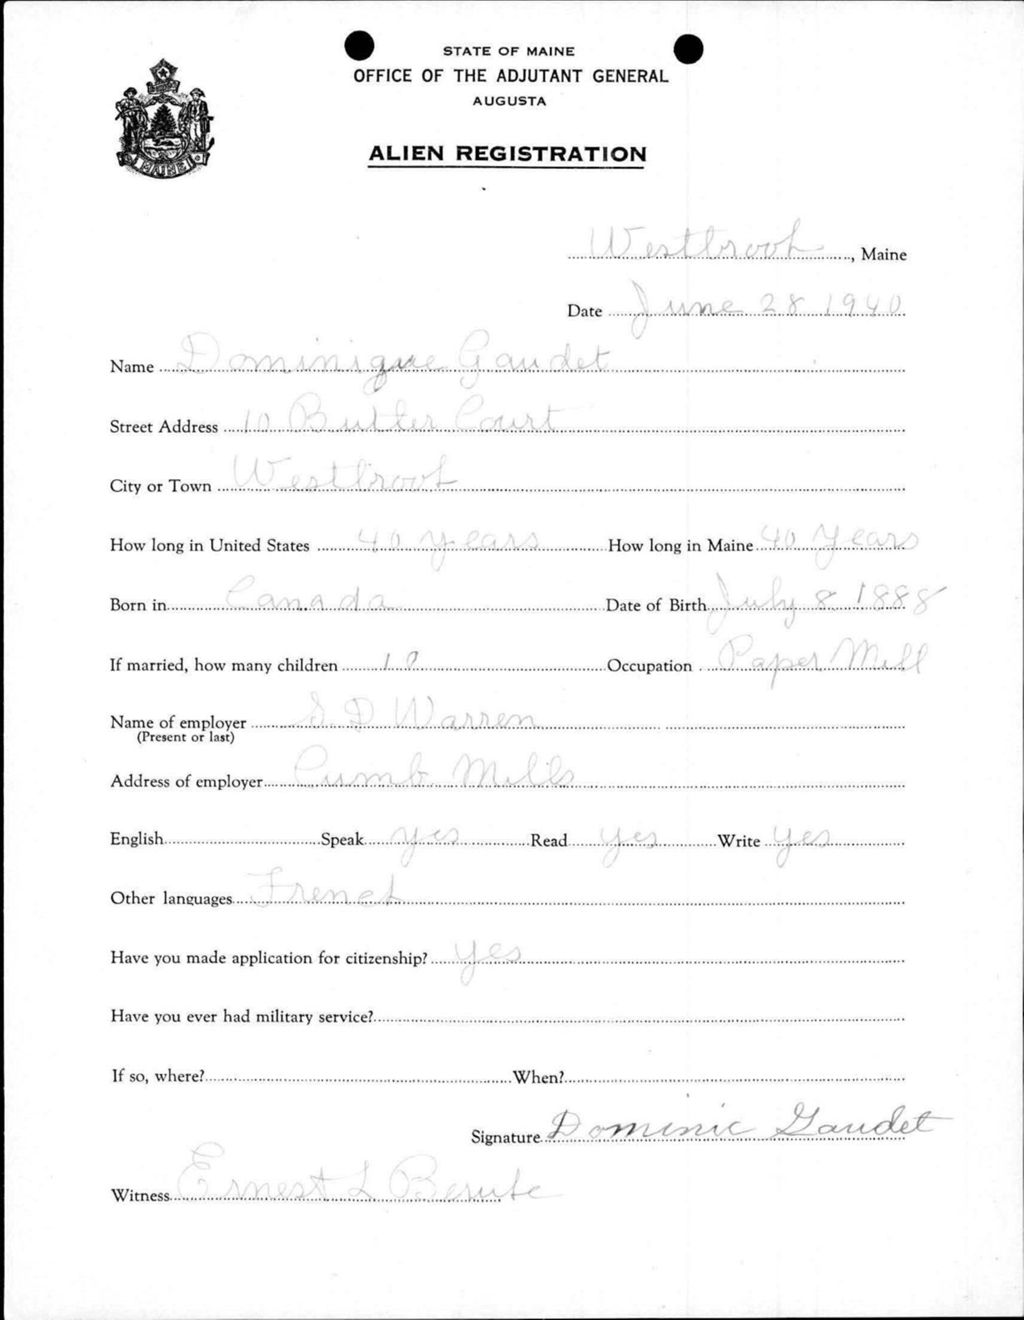 STATE OF MAINE
OFFICE OF THE ADJUTANT GENERAL
AUGUSTA
ALIEN REGISTRATION
MAINE
Westbrook, Maine
Date June 28 1940
Name Dominique Gaudet
Street Address 10 Butler Court
City or Town Westbrook
How long in United States 40 years How long in Maine 40 Years
Born in Canada Date of Birth July 8 1888
If married, how many children 10 Occupation Paper Mill
Name of employer S. D Warren
(Present or last)
Address of employer Cumb. Mills
English Speak yes Read yes Write yes
Other languages French
Have you made application for citizenship? yes
Have you ever had military service?
If so, where? When?
Signature Dominic Gaudet
Witness Ernest L